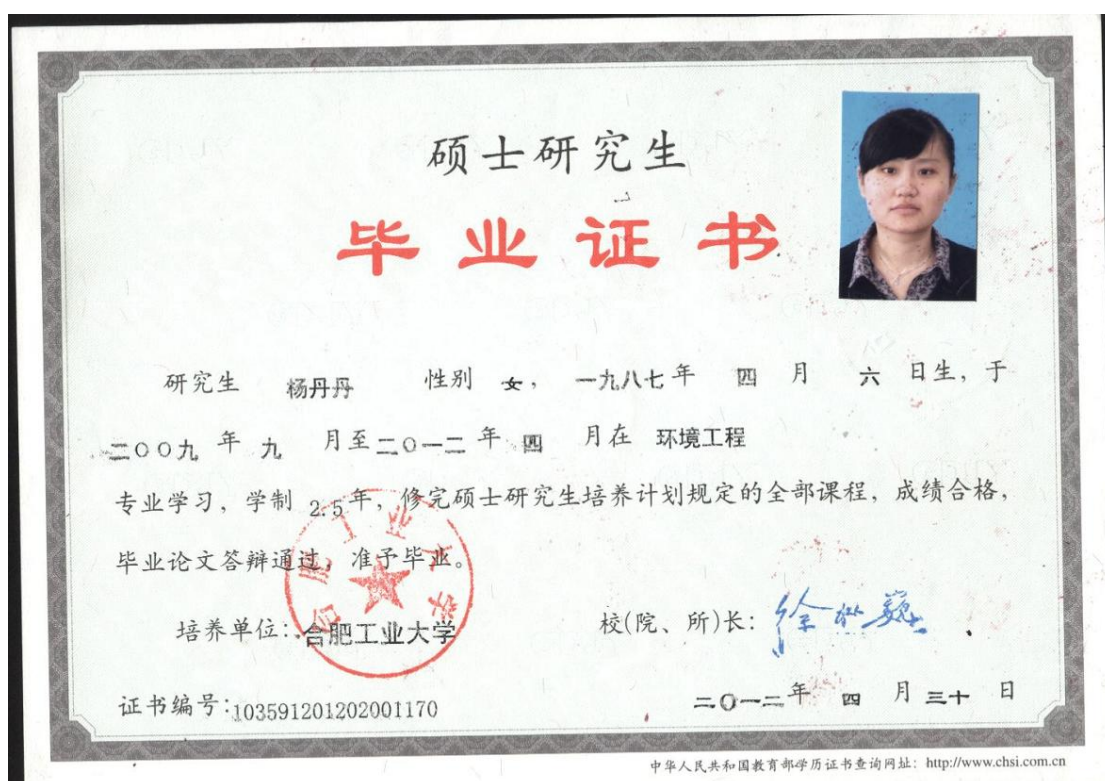 硕士研究生
毕业证书
研究生 杨丹丹 性别 女， 一九八七年 四 月 六 日生，于
二〇〇九 年 九 月至二〇一二 年 四 月在 环境工程
专业学习，学制 2.5年，修完硕士研究生培养计划规定的全部课程，成绩合格，
毕业论文答辩通过，准予毕业。
合肥工业大学
培养单位：合肥工业大学 校(院、所)长：徐枞巍
证书编号：103591201202001170 二〇一二年 四 月 三十 日
中华人民共和国教育部学历证书查询网址：http://www.chsi.com.cn